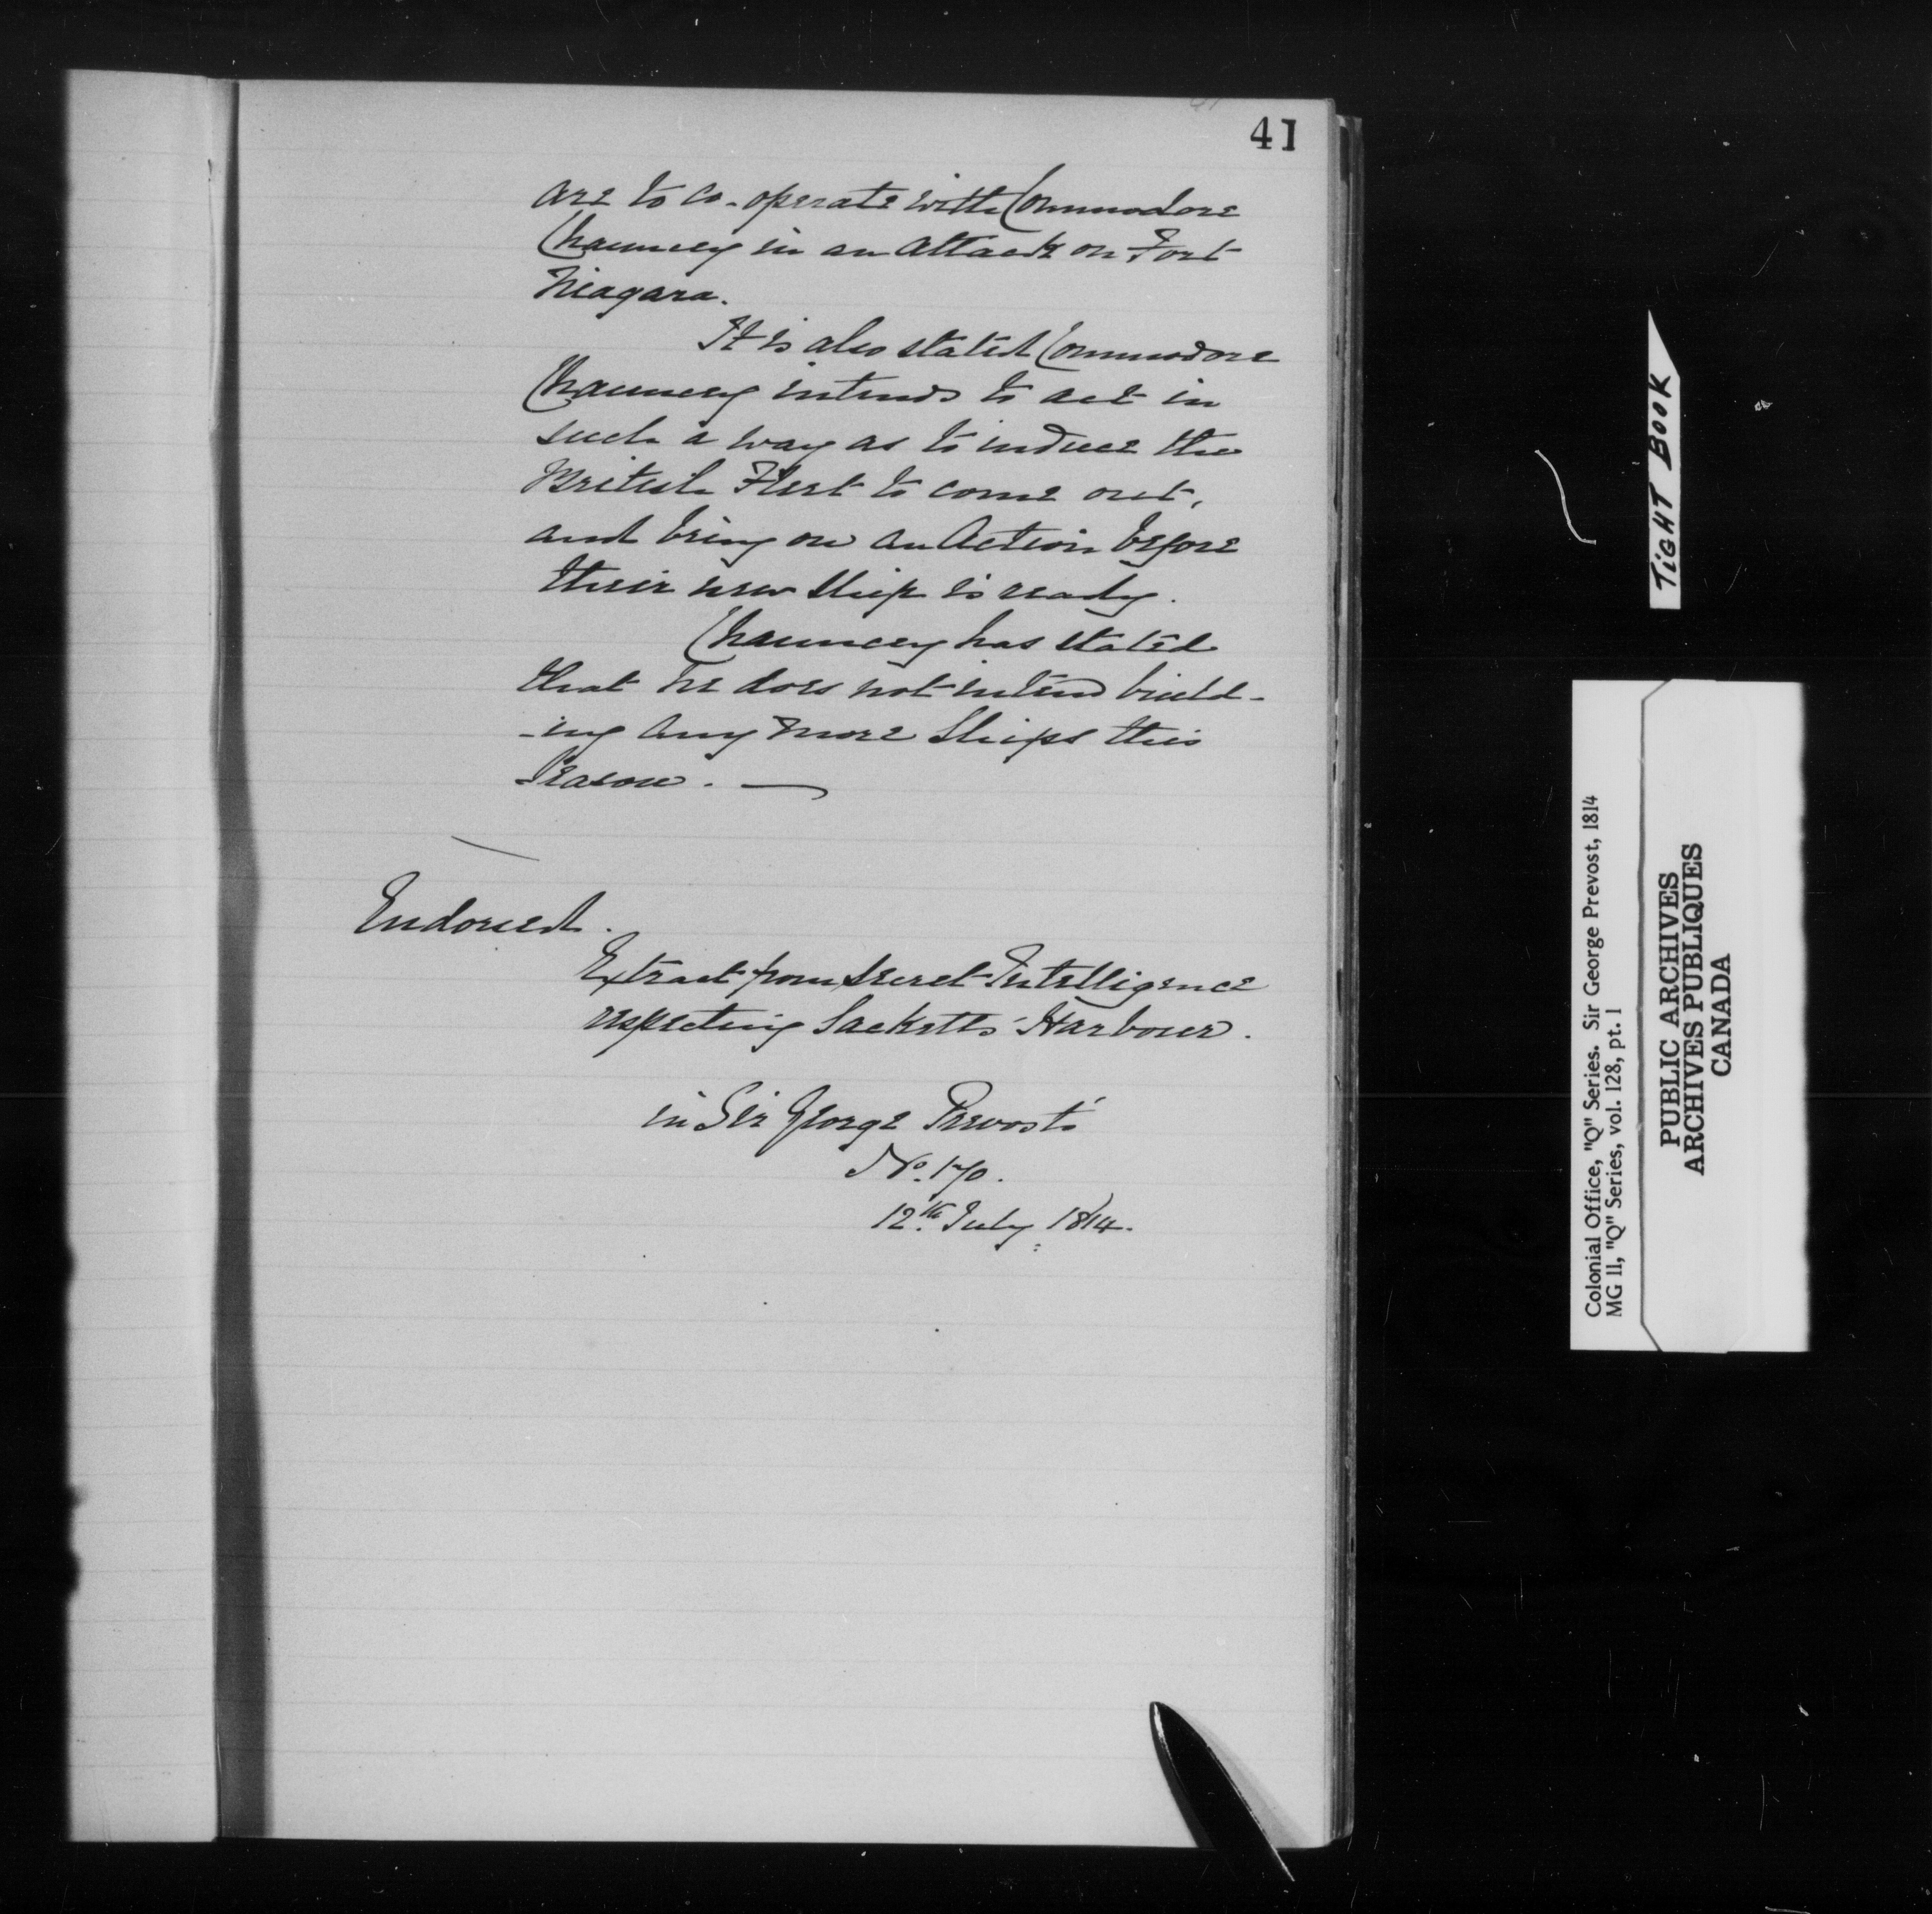 41
are to co-operate with Commodore
Chauncey in an attack on Fort
Niagara.
It is also stated Commodore
Chauncey intends to act in
such a way as to induce the
British Fleet to come out,
and bring on an Action before
their new Ship is ready.
Chauncey has stated
that he does not intend build-
-ing any more Ships this
Season. —
Endorsed.
Extract from Secret Intelligence
respecting Sacketts' Harbour.
in Sir George Prevost's
No. 170.
12th July 1814.
TIGHT BOOK
Colonial Office, "Q" Series. Sir George Prevost, 1814
MG 11, "Q" Series, vol. 128, pt. 1
PUBLIC ARCHIVES
ARCHIVES PUBLIQUES
CANADA